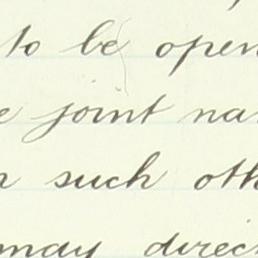 to be open
e joint na
n such oth
may direc